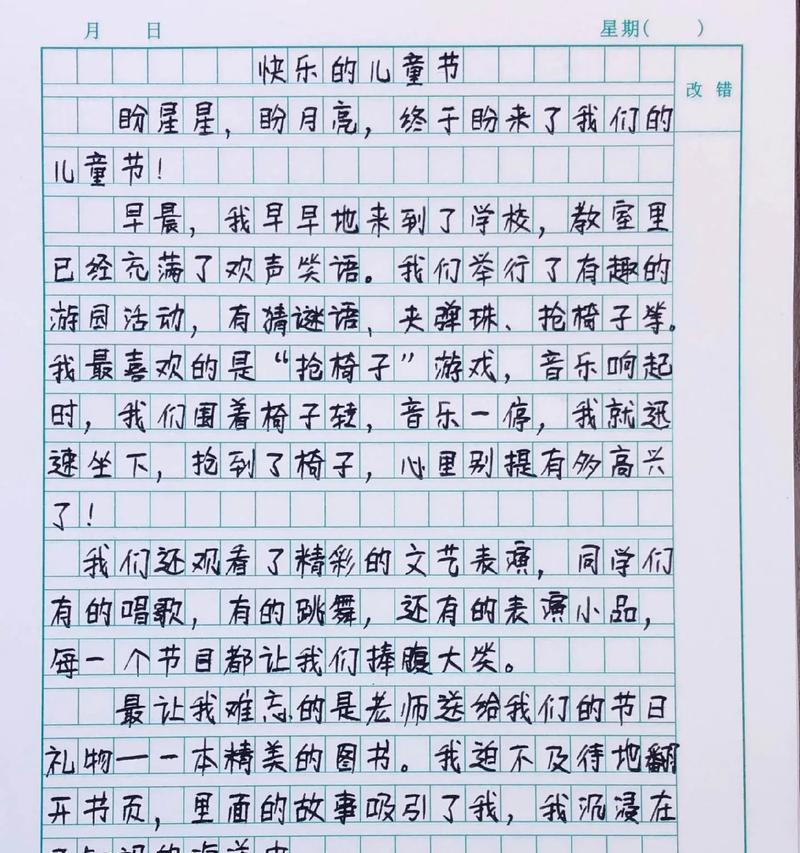 月 日 星期( )
改 错
快乐的儿童节
盼星星，盼月亮，终于盼来了我们的
儿童节！
早晨，我早早地来到了学校，教室里
已经充满了欢声笑语。我们举行了有趣的
游园活动，有猜谜语、夹弹珠、抢椅子等。
我最喜欢的是“抢椅子”游戏，音乐响起
时，我们围着椅子转，音乐一停，我就迅
速坐下，抢到了椅子，心里别提有多高兴
了！
我们还观看了精彩的文艺表演，同学们
有的唱歌，有的跳舞，还有的表演小品，
每一个节目都让我们捧腹大笑。
最让我难忘的是老师送给我们的节日
礼物——一本精美的图书。我迫不及待地翻
开书页，里面的故事吸引了我，我沉浸在